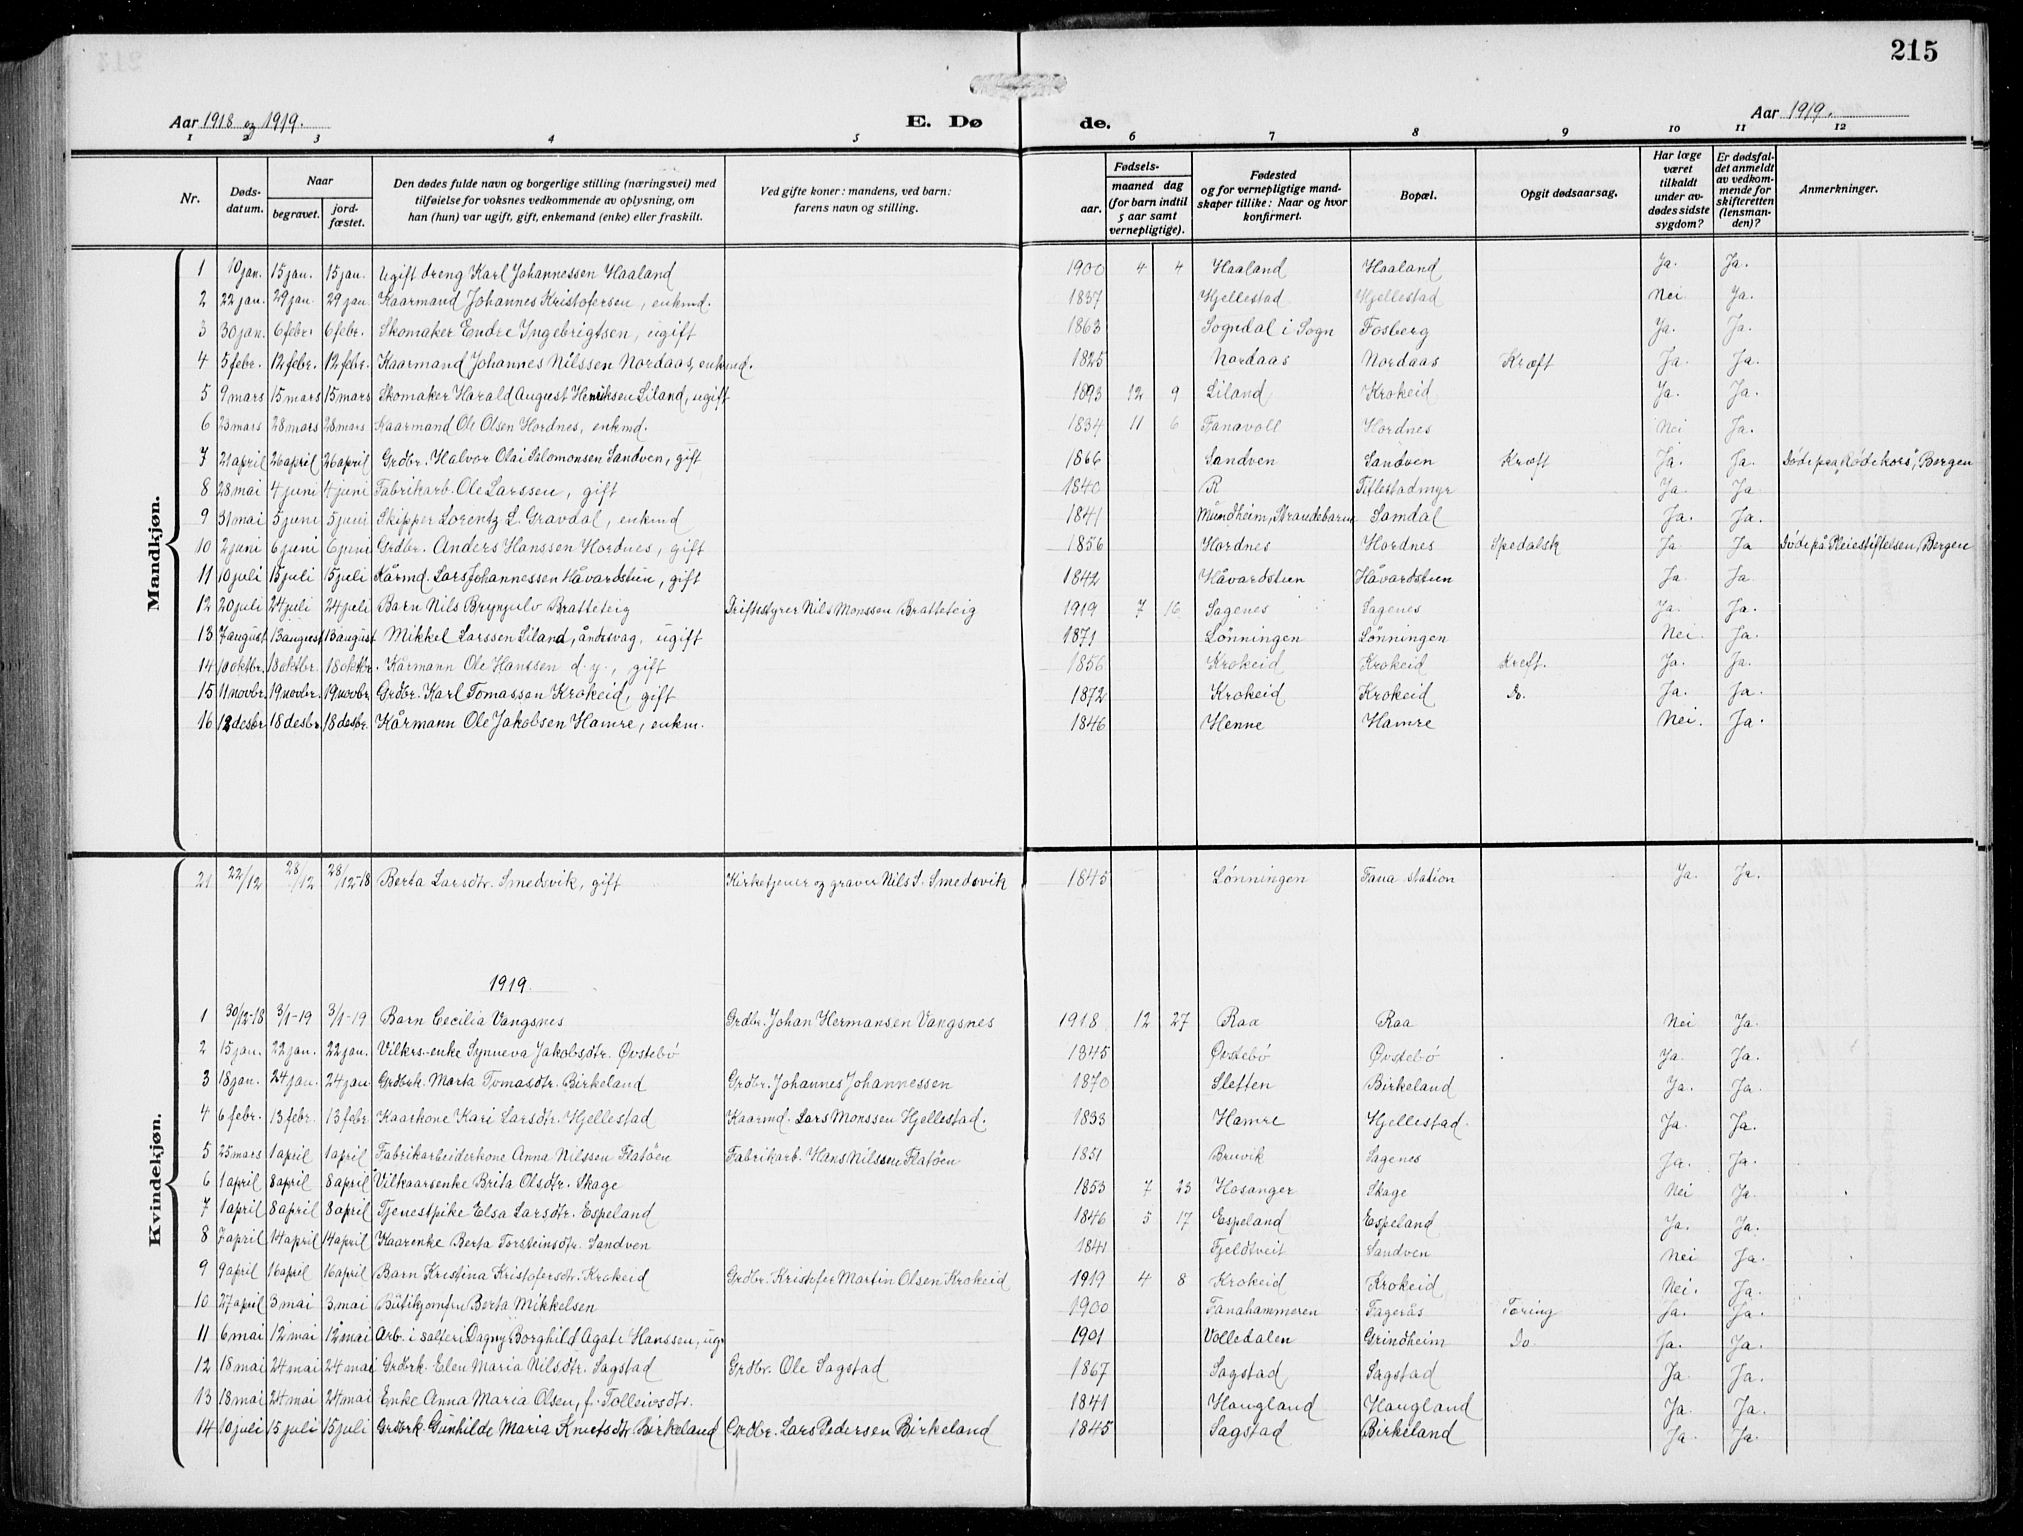 215
Aar 1918 og 1919.
E. Dø
de.
Aar 1919.
1 2 3 4 5 6 7 8 9 10 11 12
Nr.
Døds-datum.
Naar
begravet.
jord-fæstet.
Den dødes fulde navn og borgerlige stilling (næringsvei) med
tilføielse for voksnes vedkommende av oplysning, om
han (hun) var ugift, gift, enkemand (enke) eller fraskilt.
Ved gifte koner: mandens, ved barn:
farens navn og stilling.
Fødsels-
aar.
maaned dag
(for barn indtil
5 aar samt
vernepligtige).
Fødested
og for vernepligtige mand-
skaper tillike: Naar og hvor
konfirmert.
Bopæl.
Opgit dødsaarsag.
Har læge
været
tilkaldt
under av-
dødes sidste
sygdom?
Er dødsfal-
det anmeldt
av vedkom-
mende for
skifteretten
(lensman-
den)?
Anmerkninger.
Mandkjøn.
1 10 jan. 15 jan. 15 jan. Ugift dreng Karl Johannessen Haaland 1900 4 4 Haaland Haaland Ja. Ja.
2 22 jan. 29 jan. 29 jan. Kaarmand Johannes Kristofersen, enkmd. 1837 Hjellestad Hjellestad Nei Ja.
3 30 jan. 6 febr. 6 febr. Skomaker Endre Ingebrigtsen, ugift 1863 Sogndal i Sogn Fosberg Ja. Ja.
4 5 febr. 12 febr. 12 febr. Kaarmand Johannes Nilssen Nordaas, enkmd. 1825 Nordaas Nordaas Kræft Ja. Ja.
5 9 mars 15 mars 15 mars Skomaker Harald August Henriksen Liland, ugift 1893 12 9 Liland Krokeid Ja. Ja.
6 23 mars 28 mars 28 mars Kaarmand Ole Olsen Hordnes, enkmd. 1834 11 6 Fanavoll Hordnes Nei Ja.
7 21 april 26 april 26 april Grdbr. Halvor Olai Salomonsen Sandven, gift 1866 Sandven Sandven Kræft Ja. Ja. Døde paa "Røde kors", Bergen
8 28 mai 4 juni 4 juni Fabrikarb. Ole Larssen, gift 1840 R Titlestadmyr Ja. Ja
9 31 mai 5 juni 5 juni Skipper Lorentz L. Gravdal, enkmd 1841 Mundheim, Strandebarm Samdal Ja. Ja.
10 2 juni 6 juni 6 juni Grdbr. Anders Hanssen Hordnes, gift 1856 Hordnes Hordnes Spedalsk Ja. Ja Døde på Pleiestiftelsen, Bergen
11 10 juli 15 juli 15 juli Kårmd. Lars Johannessen Håvardstun, gift 1842 Håvardstun Håvardstun Ja Ja.
12 20 juli 24 juli 24 juli Barn Nils Brynjulv Bratteteig Driftsstyrer Nils Monssen Bratteteig 1919 7 16 Sagenes Sagenes Ja. Ja.
13 7 august 13 august 13 august Mikkel Larssen Liland, åndssvag, ugift 1871 Lønningen Lønningen Nei. Ja.
14 10 oktbr. 18 oktbr. 18 oktbr. Kårmann Ole Hanssen d. y., gift 1856 Krokeid Krokeid Kreft. Ja. Ja.
15 11 novbr. 19 novbr. 19 novbr. Grdbr. Karl Tomassen Krokeid, gift 1872 Krokeid Krokeid Do. Ja. Ja.
16 12 desbr 18 desbr. 18 desbr. Kårmann Ole Jakobsen Hamre, enkm. 1846 Henne Hamre Nei. Ja.
Kvindekjøn.
21 22/12 28/12 28/12-18 Berta Larsdtr. Smedsvik, gift Kirketjener og graver Nils S. Smedsvik 1845 Lønningen Fana station Ja. Ja.
1919.
1 30/12-18 3/1-19 3/1-19 Barn Cecilia Vangsnes Grdbr. Johan Hermansen Vangsnes 1918 12 27 Raa Raa Nei Ja.
2 15 jan. 22 jan. 22 jan. Vilkrs-enke Synneva Jakobsdtr. Øvstebø 1845 Øvstebø Øvstebø Ja. Ja.
3 18 jan. 24 jan. 24 jan Grdbrk. Marta Tomasdtr. Birkeland Grdbr. Johannes Johannessen 1870 Sletten Birkeland Ja. Ja.
4 6 febr. 13 febr. 13 febr. Kaarkone Kari Larsdtr. Hjellestad Kaarmd. Lars Monssen Hjellestad. 1833 Hamre Hjellestad. Ja. Ja.
5 25 mars 1 april 1 april Fabrikarbeiderkone Anna Nilssen Flatøen Fabrikarb. Hans Nilssen Flatøen 1851 Bruvik Sagenes Ja. Ja.
6 1 april 8 april 8 april Vilkaarsenke Brita Olsdtr. Skage 1853 7 23 Hosanger Skage Nei Ja.
7 1 april 8 april 8 april Tjenestpike Elsa Larsdtr. Espeland 1846 5 17 Espeland Espeland Ja. Ja.
8 7 april 14 april 14 april Kaarenke Berta Torsteinsdtr. Sandven 1841 Fjeldtveit Sandven Nei Ja.
9 9 april 16 april 16 april Barn Kristina Kristofersdtr. Krokeid Grdbr. Kristofer Martin Olsen Krokeid 1919 4 8 Krokeid Krokeid Nei. Ja.
10 27 april 3 mai 3 mai Butikjomfru Berta Mikkelsen 1900 Fanahammeren Fagerås Tæring Ja. Ja.
11 6 mai 12 mai 12 mai Arb. i salteri Dagny Borghild Agate Hanssen, ug. 1901 Volledalen Grindheim Do. Ja. Ja.
12 18 mai 24 mai 24 mai Grdbrk. Elen Maria Nilsdtr. Sagstad Grdbr. Ole Sagstad 1867 Sagstad Sagstad Ja Ja.
13 18 mai 24 mai 24 mai Enke Anna Maria Olsen, f. Tolleivsdtr. 1841 Haugland Haugland Ja. Ja.
14 10 juli 15 juli 15 juli Grdbrk. Gunhilde Maria Knutsdtr Birkeland Grdbr. Lars Pedersen Birkeland 1845 Sagstad Birkeland Ja. Ja.